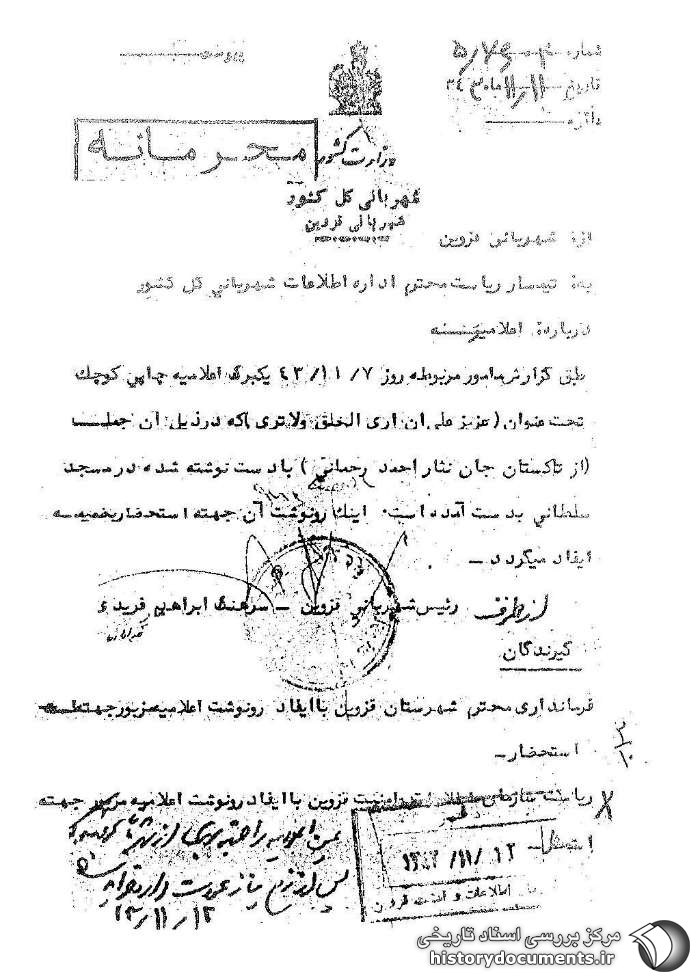 شماره ۵/۷۶
تاریخ ۱۱/۱۱
پیوست
محرمانه
وزارت کشور
شهربانی کل کشور
شهربانی قزوین
از: شهربانی قزوین
به: تیمسار ریاست محترم اداره اطلاعات شهربانی کل کشور
درباره: اعلامیه
طبق گزارش مامور مربوطه روز ۴۳/۱۱/۷ یکبرگ اعلامیه چاپی کوچک
تحت عنوان (عزیز علی ان اری الخلق ولاتری) که در ذیل آن جمله
(از تاکستان جان نثار احمد رحمانی) با دست نوشته شده در مسجد
سلطانی بدست آمده است. اینک رونوشت آن جهته استحضار بضمیمه
ایفاد میگردد ـ
از طرف رئیس شهربانی قزوین ـ سرهنگ ابراهیم فریدی
گیرندگان
فرمانداری محترم شهرستان قزوین با ایفاد رونوشت اعلامیه مزبور جهته
استحضار ـ
ریاست سازمان اطلاعات و امنیت قزوین با ایفاد رونوشت اعلامیه مزبور جهته
عین اعلامیه را
پس از
۴۳/۱۱/۱۲
۱۳۴۳/۱۱/۱۲
اطلاعات و امنیت قزوین
مرکز بررسی اسناد تاریخی
historydocuments.ir